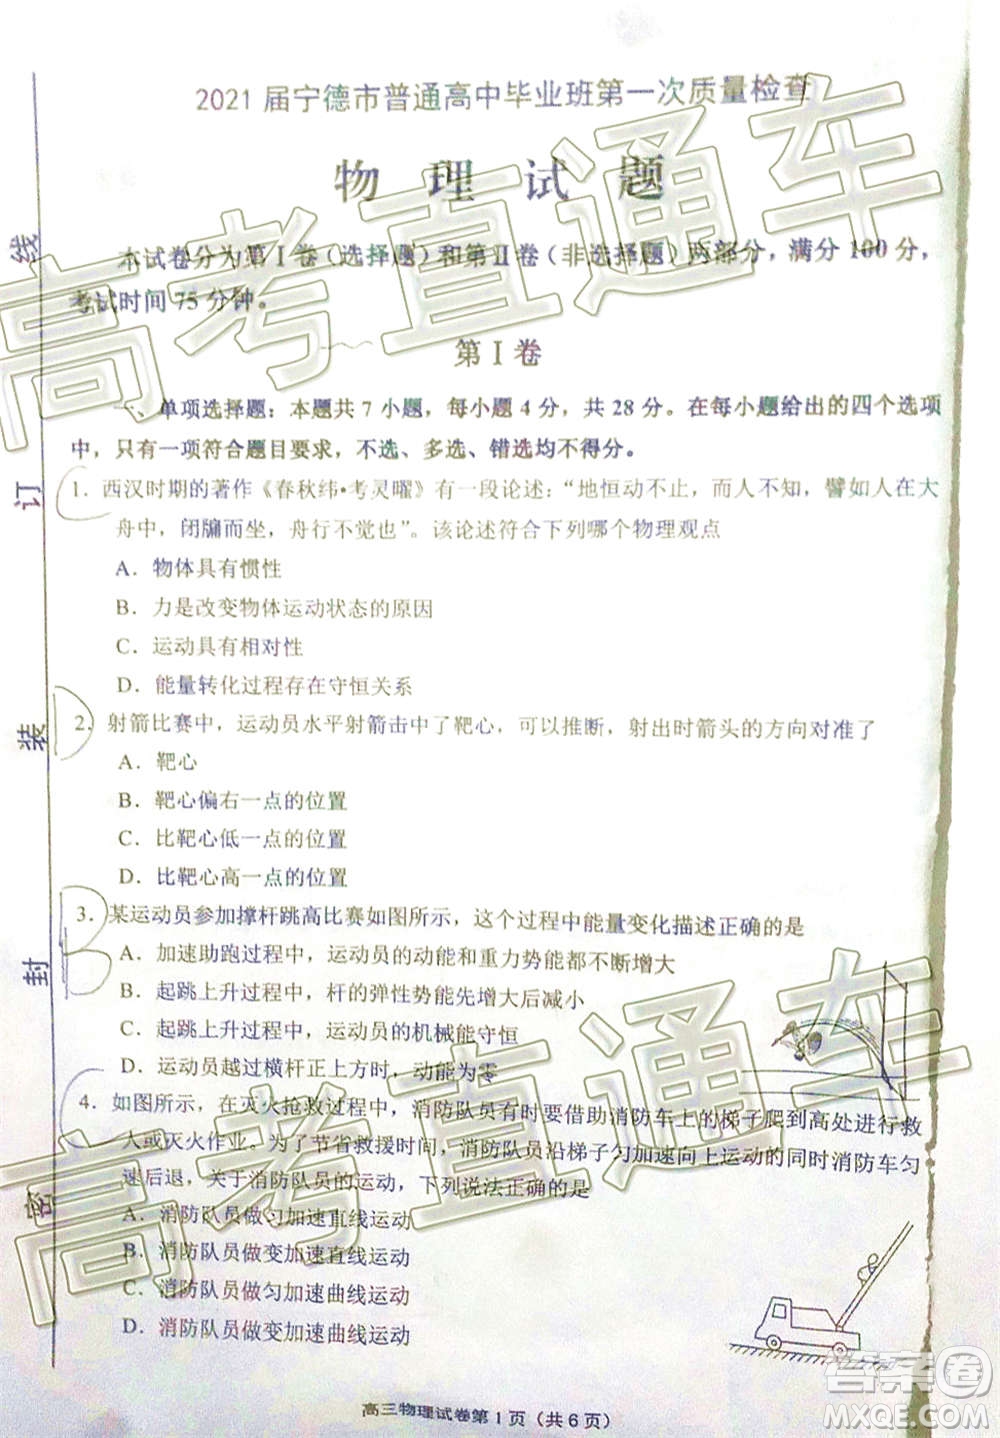 2021 届宁德市普通高中毕业班第一次质量检查
物 理 试 题
本试卷分为第 I 卷（选择题）和第 II 卷（非选择题）两部分，满分 100 分，
考试时间 75 分钟。
第 I 卷
一、单项选择题：本题共 7 小题，每小题 4 分，共 28 分。在每小题给出的四个选项
中，只有一项符合题目要求，不选、多选、错选均不得分。
1．西汉时期的著作《春秋纬•考灵曜》有一段论述：“地恒动不止，而人不知，譬如人在大
舟中，闭牖而坐，舟行不觉也”。该论述符合下列哪个物理观点
A．物体具有惯性
B．力是改变物体运动状态的原因
C．运动具有相对性
D．能量转化过程存在守恒关系
2．射箭比赛中，运动员水平射箭击中了靶心，可以推断，射出时箭头的方向对准了
A．靶心
B．靶心偏右一点的位置
C．比靶心低一点的位置
D．比靶心高一点的位置
3．某运动员参加撑杆跳高比赛如图所示，这个过程中能量变化描述正确的是
A．加速助跑过程中，运动员的动能和重力势能都不断增大
B．起跳上升过程中，杆的弹性势能先增大后减小
C．起跳上升过程中，运动员的机械能守恒
D．运动员越过横杆正上方时，动能为零
4．如图所示，在灭火抢救过程中，消防队员有时要借助消防车上的梯子爬到高处进行救
人或灭火作业。为了节省救援时间，消防队员沿梯子匀加速向上运动的同时消防车匀
速后退，关于消防队员的运动，下列说法正确的是
A．消防队员做匀加速直线运动
B．消防队员做变加速直线运动
C．消防队员做匀加速曲线运动
D．消防队员做变加速曲线运动
高三物理试卷第 1 页（共 6 页）
线
订
装
封
密
高考直通车
高考直通车
答案卷
MXQE.COM